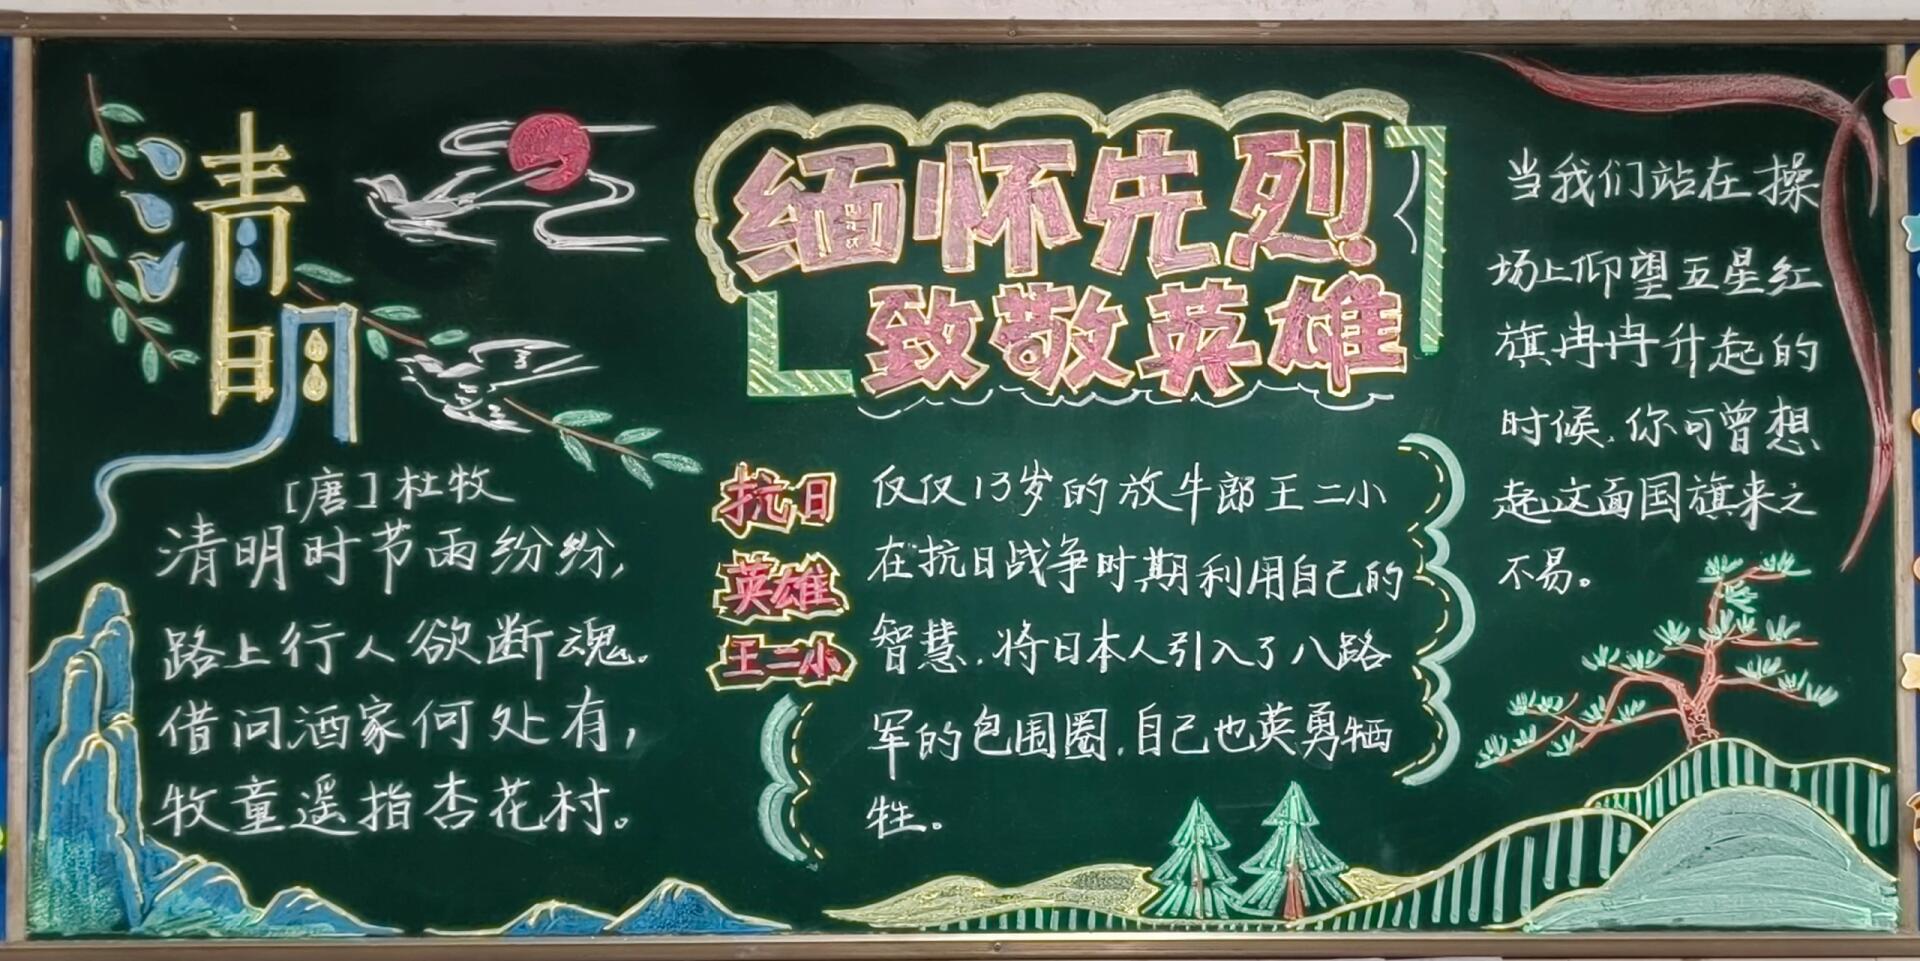 清明
[唐]杜牧
清明时节雨纷纷,
路上行人欲断魂。
借问酒家何处有,
牧童遥指杏花村。
缅怀先烈
致敬英雄
抗日
英雄
王二小
仅仅13岁的放牛郎王二小
在抗日战争时期利用自己的
智慧,将日本人引入了八路
军的包围圈,自己也英勇牺
牲。
当我们站在操
场上仰望五星红
旗冉冉升起的
时候,你可曾想
起这面国旗来之
不易。